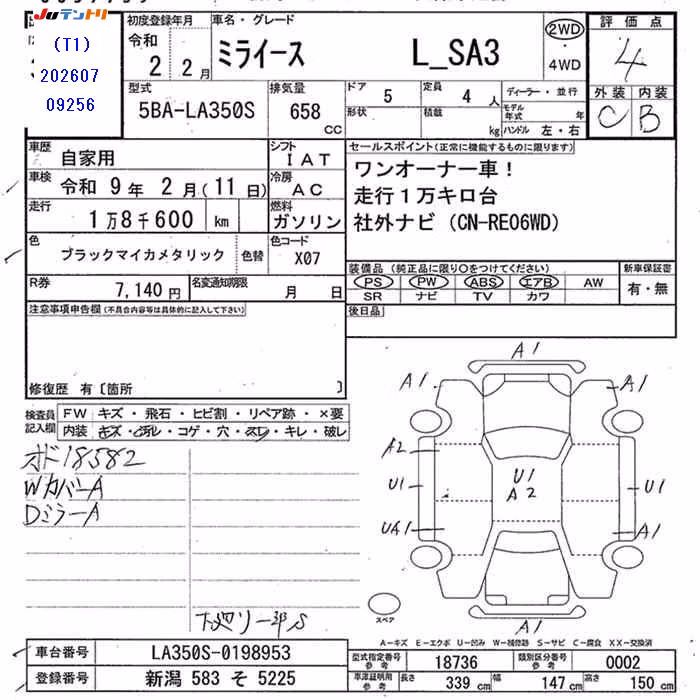 JUテントリ
(T1)
202607
09256
初度登録年月
令和
2 2月
車名・グレード
ミライース L_SA3
2WD
・
4WD
評価点
4
外装 内装
C B
型式
5BA-LA350S
排気量
658
CC
ドア
5
形状
定員
4 人
積載
kg
ディーラー・並行
モデル年式 年
ハンドル 左・右
車歴
自家用
シフト
IAT
車検
令和 9年 2月(11日)
冷房
AC
走行
1万8千600 km
燃料
ガソリン
色
ブラックマイカメタリック
色替
色コード
X07
R券
7,140円
名変通知期限
月 日
セールスポイント(正常に機能するものに限ります)
ワンオーナー車!
走行1万キロ台
社外ナビ(CN-RE06WD)
装備品(純正品に限り○をつけてください)
PS PW ABS エアB AW
SR ナビ TV カワ
新車保証書
有・無
後日品
注意事項申告欄(不具合内容等は具体的に記入して下さい)
修復歴 有〔箇所 〕
検査員
記入欄
FW キズ・飛石・ヒビ割・リペア跡・×要
内装 キズ・汚れ・コゲ・穴・スレ・キレ・破レ
オド18582
WカバーA
DミラーA
下廻り一部S
A1
A1 A1
A2
U1 U1 U1
A2
UA1 A1
A1
スペア
A-キズ E-エクボ U-凹み W-補修跡 S-サビ C-腐食 XX-交換済
車台番号
LA350S-0198953
登録番号
新潟 583 そ 5225
型式指定番号
参考
18736
類別区分番号
参考
0002
車津証明用
参考
長さ 339 cm 幅 147 cm 高さ 150 cm